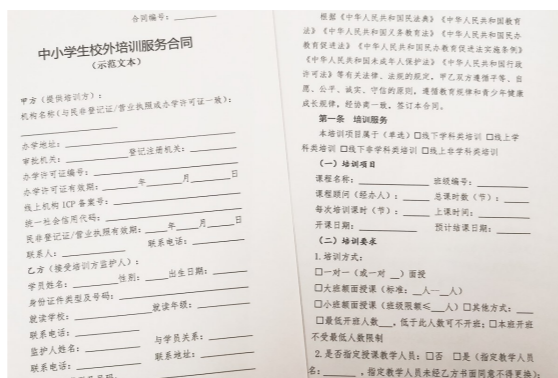 合同编号：
中小学生校外培训服务合同
（示范文本）
甲方（提供培训方）：
机构名称（与民非登记证/营业执照或办学许可证一致）：
办学地址：
审批机关： 登记注册机关：
办学许可证编号：
办学许可证有效期： 年 月 日
线上机构 ICP 备案号：
统一社会信用代码：
民非登记证/营业执照有效期： 年 月 日
联系人： 联系电话：
乙方（接受培训方监护人）：
学员姓名： 性别： 出生日期：
身份证件类型及号码：
就读学校： 就读年级：
联系电话：
监护人姓名： 与学员关系：
联系电话： 联系地址：
根据《中华人民共和国民法典》《中华人民共和国教育
法》《中华人民共和国义务教育法》《中华人民共和国民办
教育促进法》《中华人民共和国民办教育促进法实施条例》
《中华人民共和国未成年人保护法》《中华人民共和国行政
许可法》等有关法律、法规的规定，甲乙双方遵循平等、自
愿、公平、诚实、守信的原则，遵循教育规律和青少年健康
成长规律，经协商一致，签订本合同。
第一条 培训服务
本培训项目属于（单选）□线下学科类培训 □线上学
科类培训 □线下非学科类培训 □线上非学科类培训
（一）培训项目
课程名称： 班级编号：
课程顾问（经办人）： 总课时数（节）：
每次培训课时（节）： 上课时间：
开课日期： 预计结课日期：
（二）培训要求
1.培训方式：
□一对一（或一对 __）面授
□大班额面授课（标准：__人—__人）
□小班额面授课（班级限额≤___人）□其他方式：___
□最低开班人数___，低于此人数可不开班；□本班开班
不受最低人数限制
2.是否指定授课教学人员：□否 □是（指定教学人员
名：______，指定教学人员未经乙方书面同意不得更换）；